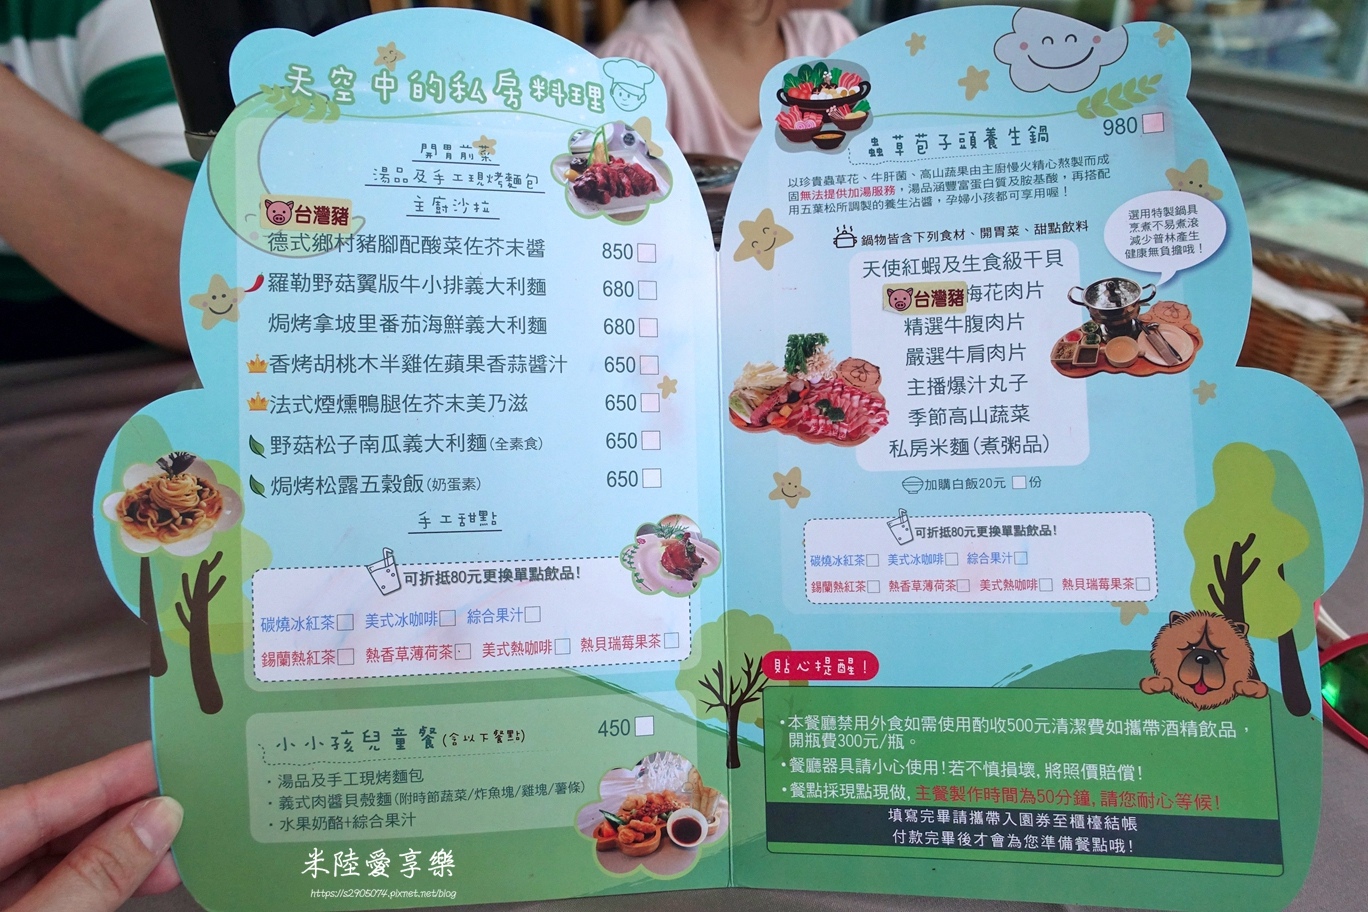 天空中的私房料理
開胃前菜
湯品及手工現烤麵包
主廚沙拉
台灣豬
德式鄉村豬腳配酸菜佐芥末醬 850
羅勒野菇翼版牛小排義大利麵 680
焗烤拿坡里番茄海鮮義大利麵 680
香烤胡桃木半雞佐蘋果香蒜醬汁 650
法式煙燻鴨腿佐芥末美乃滋 650
野菇松子南瓜義大利麵(全素食) 650
焗烤松露五穀飯(奶蛋素) 650
手工甜點
可折抵80元更換單點飲品!
碳燒冰紅茶 美式冰咖啡 綜合果汁
錫蘭熱紅茶 熱香草薄荷茶 美式熱咖啡 熱貝瑞莓果茶
小小孩兒童餐(含以下餐點) 450
・湯品及手工現烤麵包
・義式肉醬貝殼麵(附時節蔬菜/炸魚塊/雞塊/薯條)
・水果奶酪+綜合果汁
米陸愛享樂
https://s2905074.pixnet.net/blog
蟲草苞子頭養生鍋 980
以珍貴蟲草花、牛肝菌、高山蔬果由主廚慢火精心熬製而成
固無法提供加湯服務，湯品涵豐富蛋白質及胺基酸，再搭配
用五葉松所調製的養生沾醬，孕婦小孩都可享用喔！
選用特製鍋具
烹煮不易煮滾
減少普林產生
健康無負擔哦！
鍋物皆含下列食材、開胃菜、甜點飲料
天使紅蝦及生食級干貝
台灣豬梅花肉片
精選牛腹肉片
嚴選牛肩肉片
主播爆汁丸子
季節高山蔬菜
私房米麵(煮粥品)
加購白飯20元 份
可折抵80元更換單點飲品!
碳燒冰紅茶 美式冰咖啡 綜合果汁
錫蘭熱紅茶 熱香草薄荷茶 美式熱咖啡 熱貝瑞莓果茶
貼心提醒！
・本餐廳禁用外食如需使用酌收500元清潔費如攜帶酒精飲品，
開瓶費300元/瓶。
・餐廳器具請小心使用！若不慎損壞，將照價賠償！
・餐點採現點現做，主餐製作時間為50分鐘，請您耐心等候！
填寫完畢請攜帶入園券至櫃檯結帳
付款完畢後才會為您準備餐點哦！